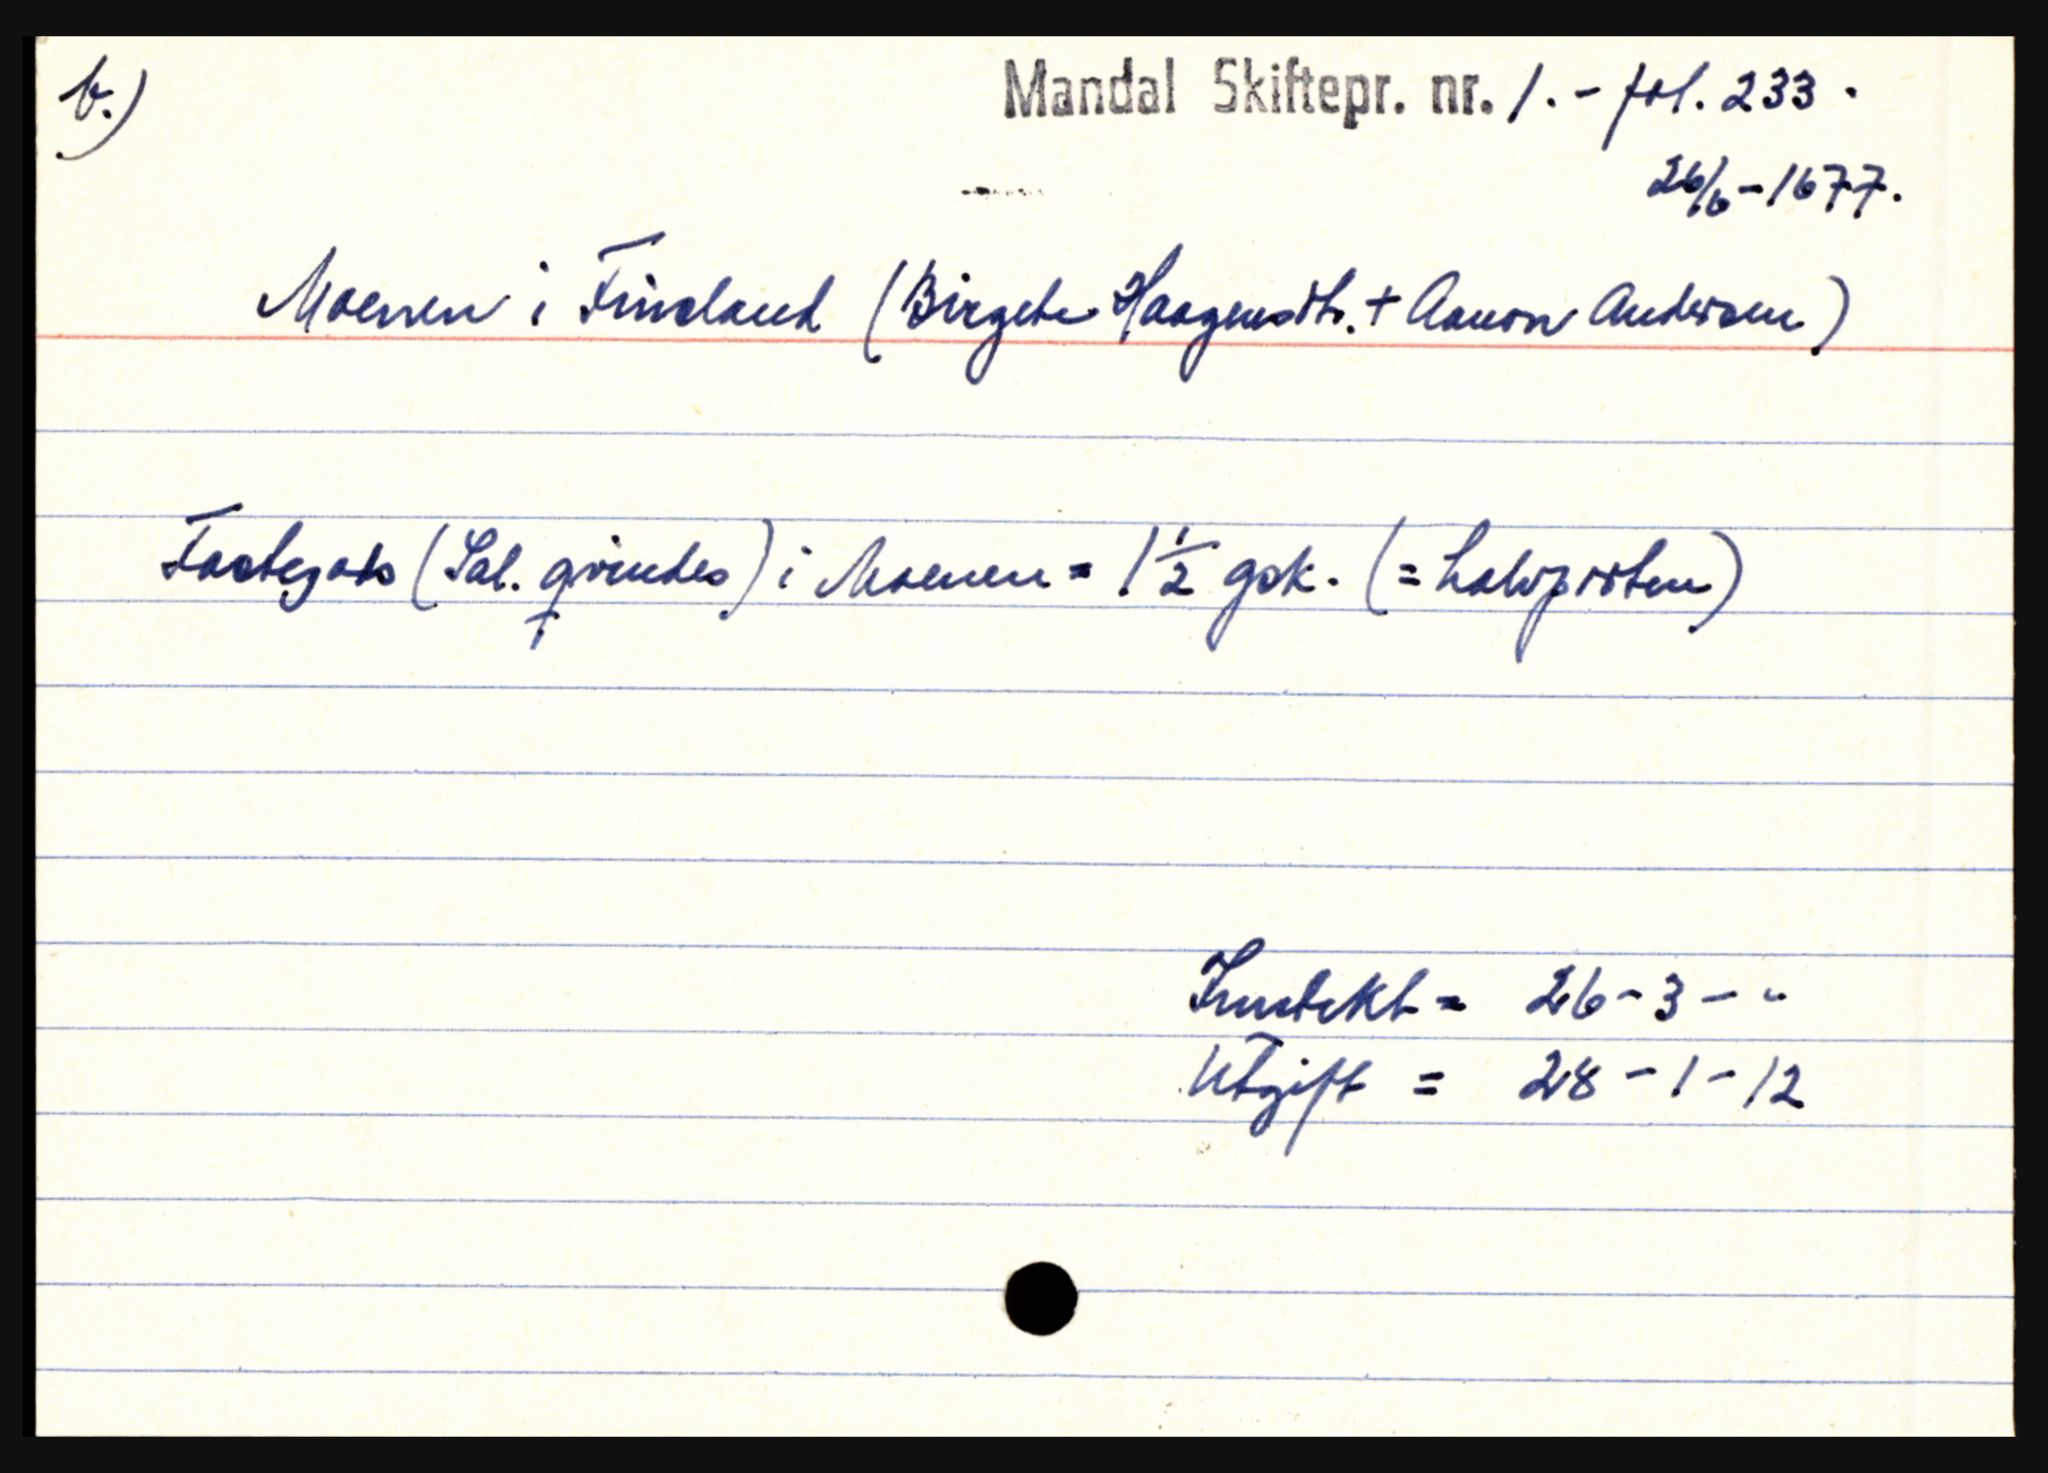 b.)
Mandal Skiftepr. nr. 1. - fol. 233.
26/6 - 1677.
Moenen i Finsland (Birgete Haagensdtr. + Aanon Andersen)
Fastegods (Sal. qvindes) i Moenen = 1 1/2 gsk. (= halvparten)
+
Inntekt = 26 - 3 - "
Utgift = 28 - 1 - 12